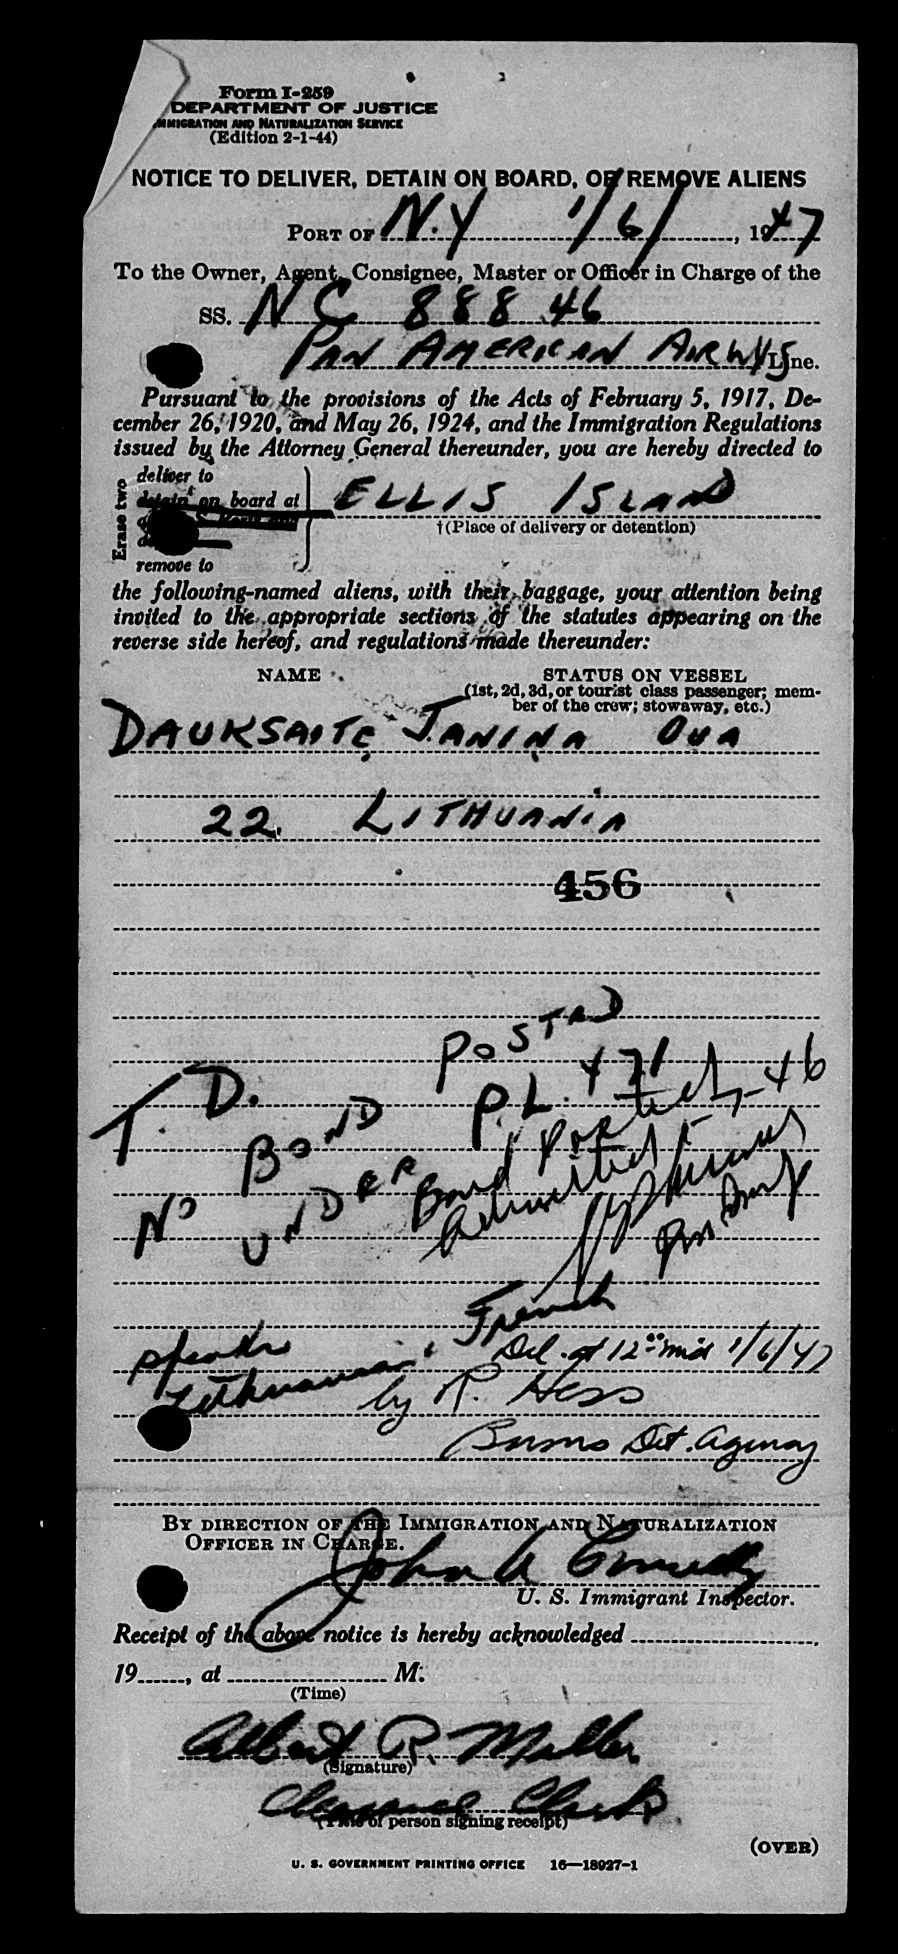 Form I-259
DEPARTMENT OF JUSTICE
IMMIGRATION AND NATURALIZATION SERVICE
(Edition 2-1-44)
NOTICE TO DELIVER, DETAIN ON BOARD, OR REMOVE ALIENS
PORT OF N.Y 1/6/, 1947
To the Owner, Agent, Consignee, Master or Officer in Charge of the
SS. NC 88846
PAN AMERICAN AIRWYS Line.
Pursuant to the provisions of the Acts of February 5, 1917, De-
cember 26, 1920, and May 26, 1924, and the Immigration Regulations
issued by the Attorney General thereunder, you are hereby directed to
Erase two
deliver to
detain on board at
remove to
ELLIS ISLAND
†(Place of delivery or detention)
the following-named aliens, with their baggage, your attention being
invited to the appropriate sections of the statutes appearing on the
reverse side hereof, and regulations made thereunder:
NAME STATUS ON VESSEL
(1st, 2d, 3d, or tourist class passenger; mem-
ber of the crew; stowaway, etc.)
DAUKSAITE, JANINA
22. LITHUANIA
456
T. D.
NO BOND POSTED
UNDER P.L. 471
Bond Posted
Admitted 1-7-46
speaks
Lithuanian, French
Del. at 12:00 mid 1/6/47
by R. Hess
Burns Det. Agency
BY DIRECTION OF THE IMMIGRATION AND NATURALIZATION
OFFICER IN CHARGE.
John A
U. S. Immigrant Inspector.
Receipt of the above notice is hereby acknowledged
19, at M.
(Time)
Albert R. Miller
(Signature)
Clerk
(Title of person signing receipt)
(OVER)
U. S. GOVERNMENT PRINTING OFFICE 16—18927-1